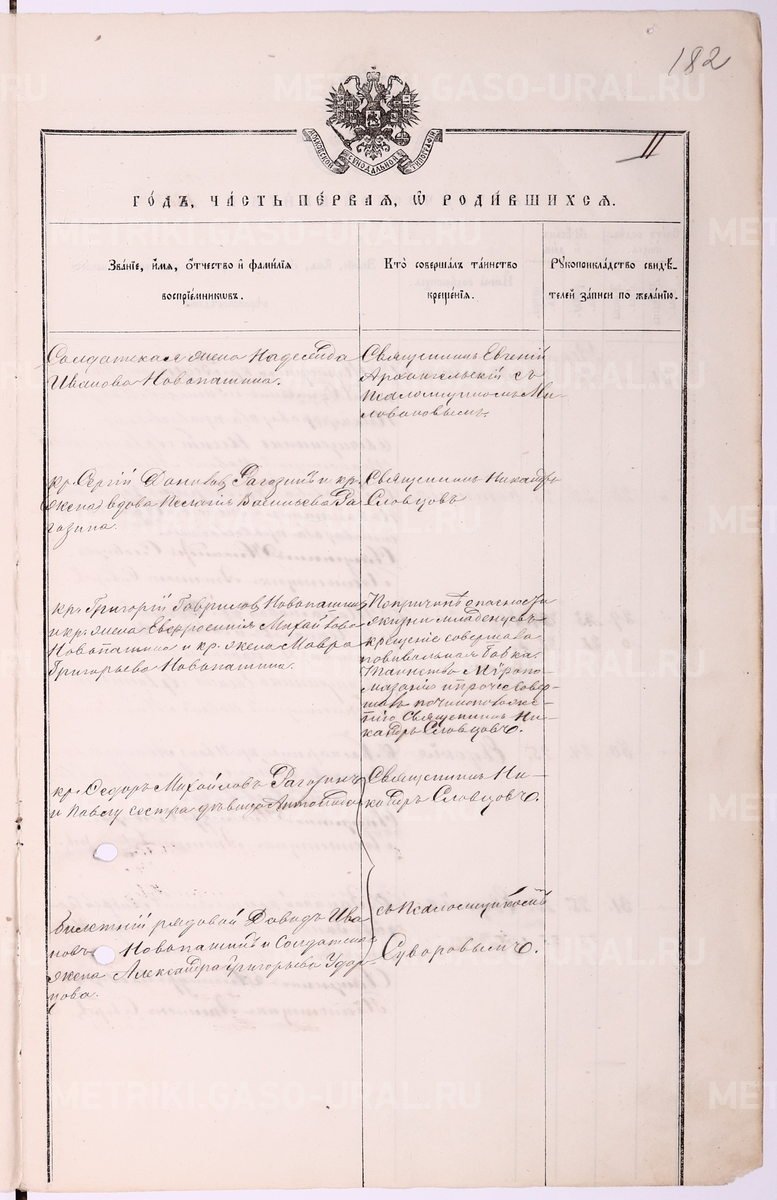 182
METRIKI.GASO-URAL.RU
МОСКОВСКОЙ СѴНОДАЛЬНОЙ ТИПОГРАФІИ
11
ГО́ДЪ, ЧА́СТЬ ПЕ́РВАѦ, Ѽ РОДИ́ВШИХСѦ.
Зва́нїе, и҆́мѧ, ѻ҆́тчество и҆ фами́лїѧ
воспрїе́мниковъ.
Кто̀ соверша́лъ та́инство
креще́нїѧ.
Рꙋкоприкла́дство свидѣ́-
телей за́писи по жела́нїю.
Солдатская жена Надежда
Иванова Новопашина.
Священникъ Евгеній
Архангельскій съ
Псаломщикомъ Ми-
ловановымъ.
кр. Сергій Рагозинъ и кр.
жена вдова Пелагія Васильева Ра
гозина.
Священникъ Никандръ
Словцовъ
кр. Григорій Гавриловъ Новопашинъ
и кр. жена Евфросинія Михайлова
Новопашина и кр. жена Мавра
Григорьева Новопашина.
По причинѣ опасности
жизни младенцевъ
крещеніе совершала
повивальная бабка.
Таинство Мѵропо-
мазанія и прочее совер-
шалъ по чиноположе-
нію Священникъ Ни-
кандръ Словцовъ.
кр. Ѳедоръ Михайловъ Рагозинъ
и Павлу сестра дѣвица
Священникъ Ни-
кандръ Словцовъ.
билетный рядовой Давидъ Ива
новъ Новопашинъ и Солдатская
жена Александра Григорьева Удар-
цова.
съ Псаломщикомъ
Суворовымъ.